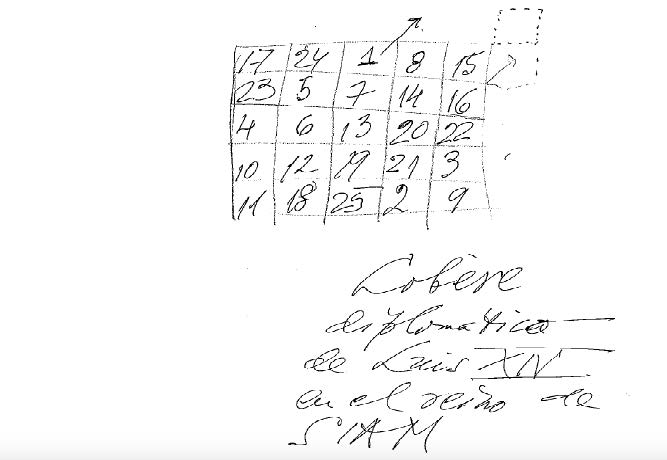 17 24 1 8 15
23 5 7 14 16
4 6 13 20 22
10 12 19 21 3
11 18 25 2 9
Lobère
diplomatico
de Luis XIV
en el reino de
SIAM